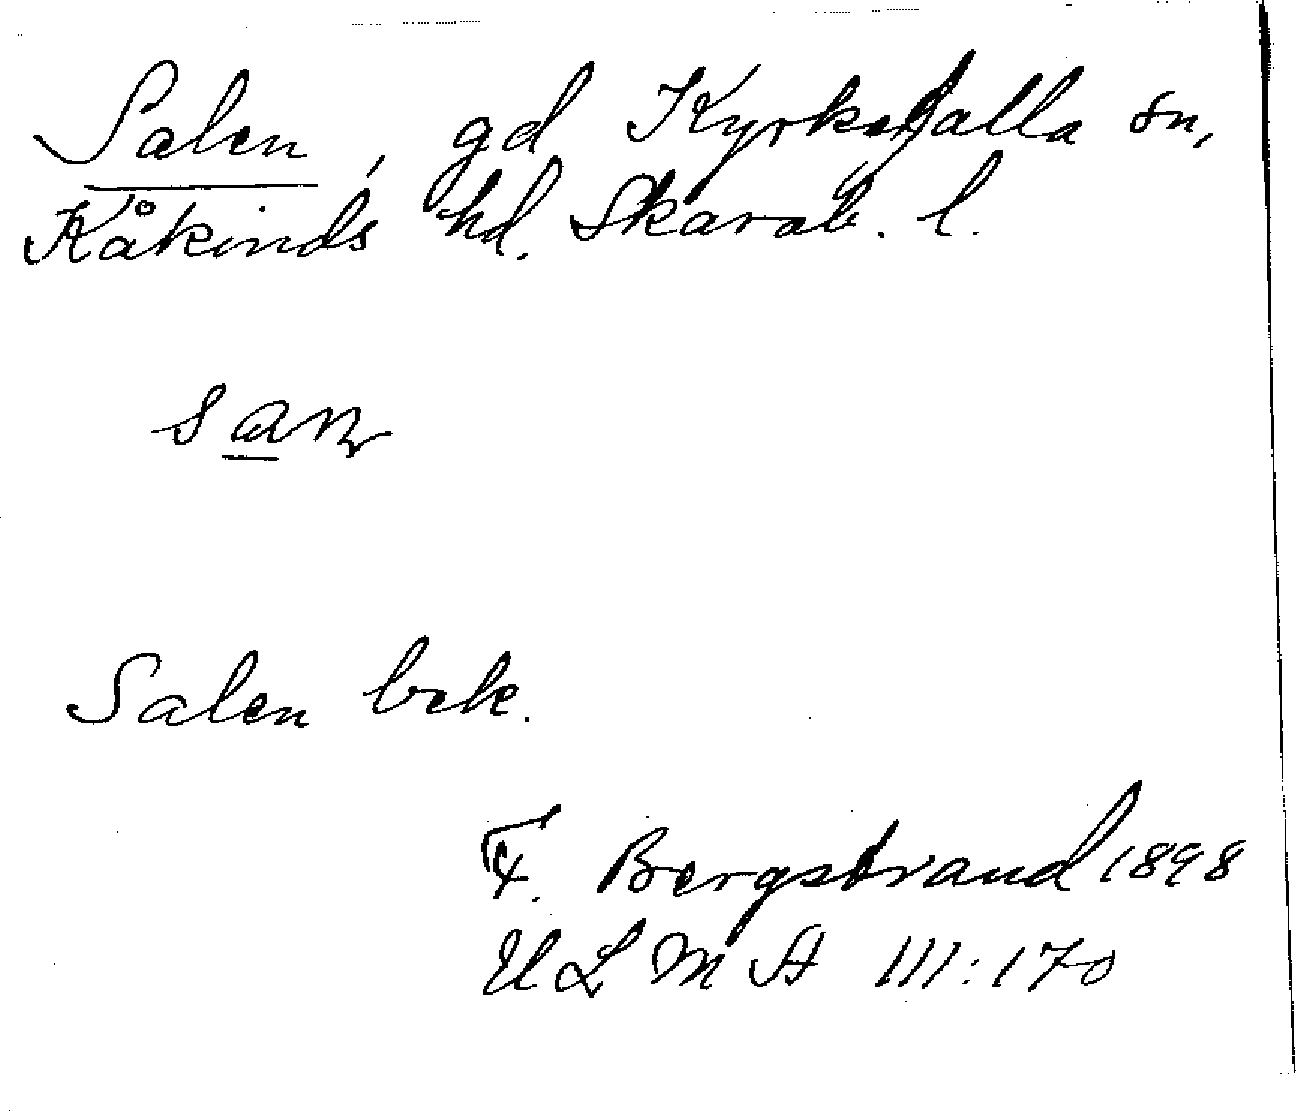 Salen, gd Kyrkefalla sn,
Kåkinds hd. Skarab. l.
Salen bek.
F. Bergstrand 1898
ULMA 111:170